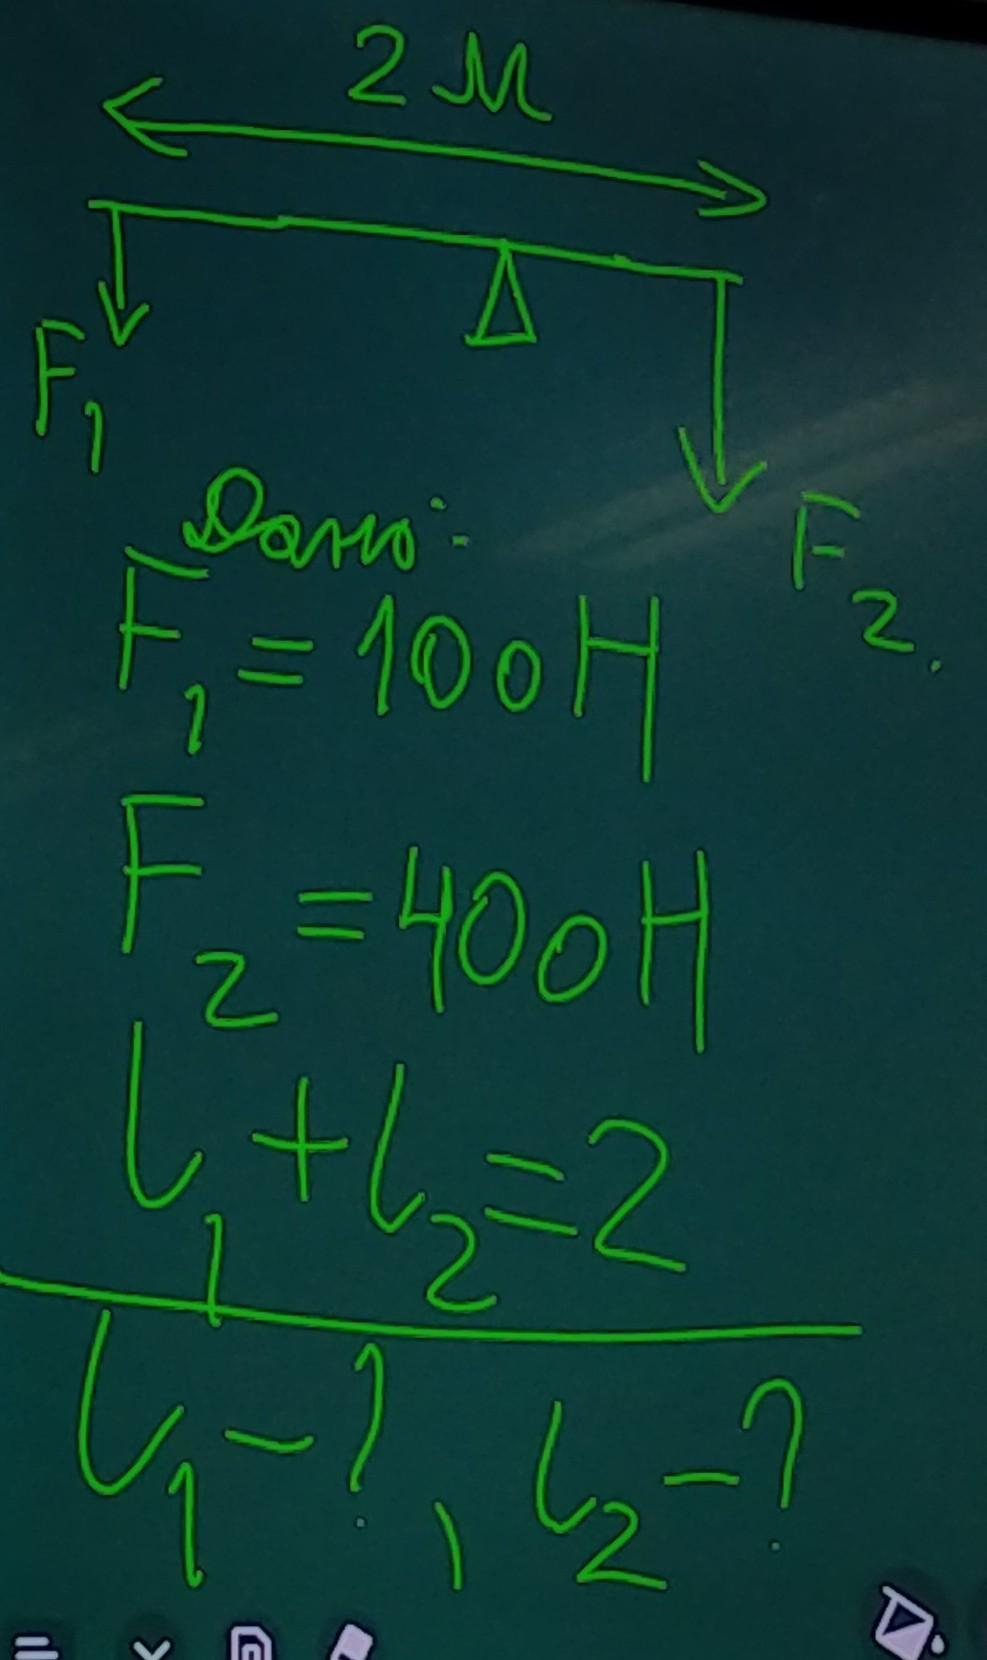 2 м
F₁
F₂.
Дано:
F₁ = 100 Н
F₂ = 400 Н
l₁ + l₂ = 2
l₁ - ?, l₂ - ?